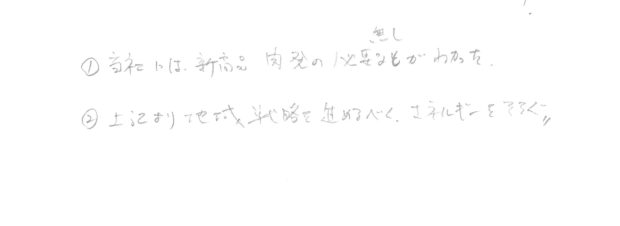 無し
① 当社には、新商品 開発の 必要 がわかった.
② 上記より 地域戦略を 進めるべく、エネルギーをそそぐ